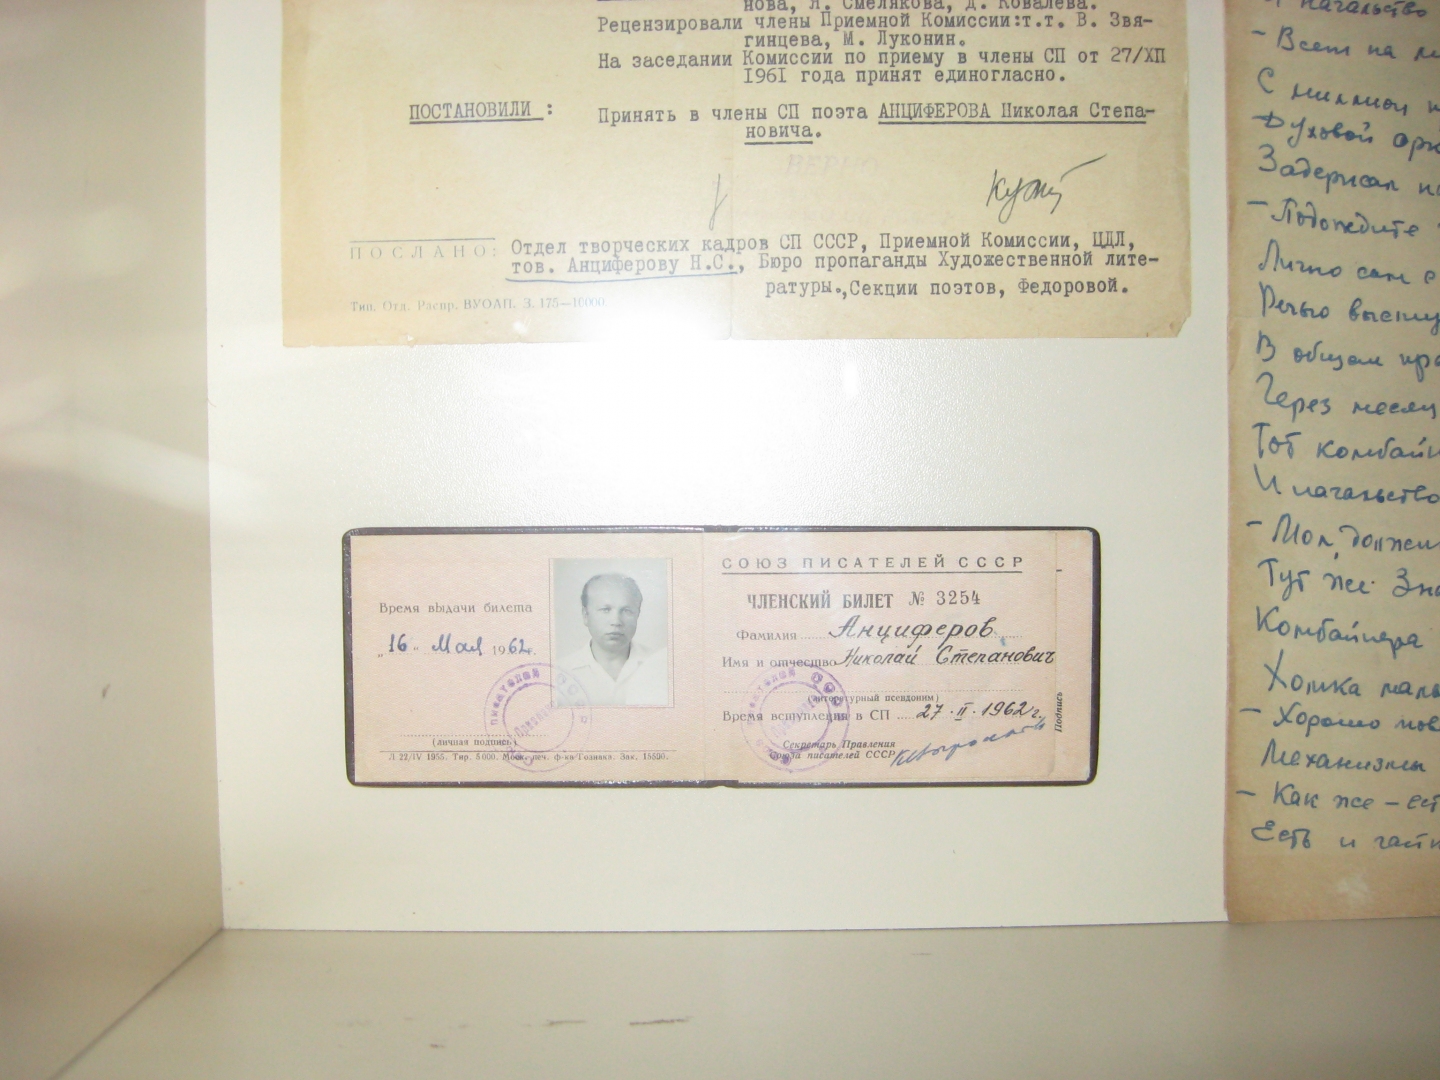 нова, Я. Смелякова, Д. Ковалева.
Рецензировали члены Приемной Комиссии:т.т. В. Звя-
гинцева, М. Луконин.
На заседании Комиссии по приему в члены СП от 27/XII
1961 года принят единогласно.
ПОСТАНОВИЛИ : Принять в члены СП поэта АНЦИФЕРОВА Николая Степа-
новича.
ВЕРНО
ПОСЛАНО: Отдел творческих кадров СП СССР, Приемной Комиссии, ЦДЛ,
тов. Анциферову Н.С., Бюро пропаганды Художественной лите-
ратуры.,Секции поэтов, Федоровой.
Тип. Отд. Распр. ВУОАП. З. 175—10000.
Время выдачи билета
„16" Мая 1962г.
(личная подпись)
Л 22/IV 1955. Тир. 5000. Моск. печ. ф-ка Гознака. Зак. 15590.
СОЮЗ ПИСАТЕЛЕЙ СССР
ЧЛЕНСКИЙ БИЛЕТ № 3254
Фамилия Анциферов
Имя и отчество Николай Степанович
(литературный псевдоним)
Время вступления в СП 27·II·1962г.
Секретарь Правления
Союза писателей СССР
Подпись
И начальство
- Всем на
С миллион
Духовой
Задержал
- Подождите
Лично сам с
Речью
В общем
Через месяц
Тот
И начальство
- Мол,
Тут же
Комбайнера
Хошка
- Хорошо
Механизмы
- Как же -
Есть и